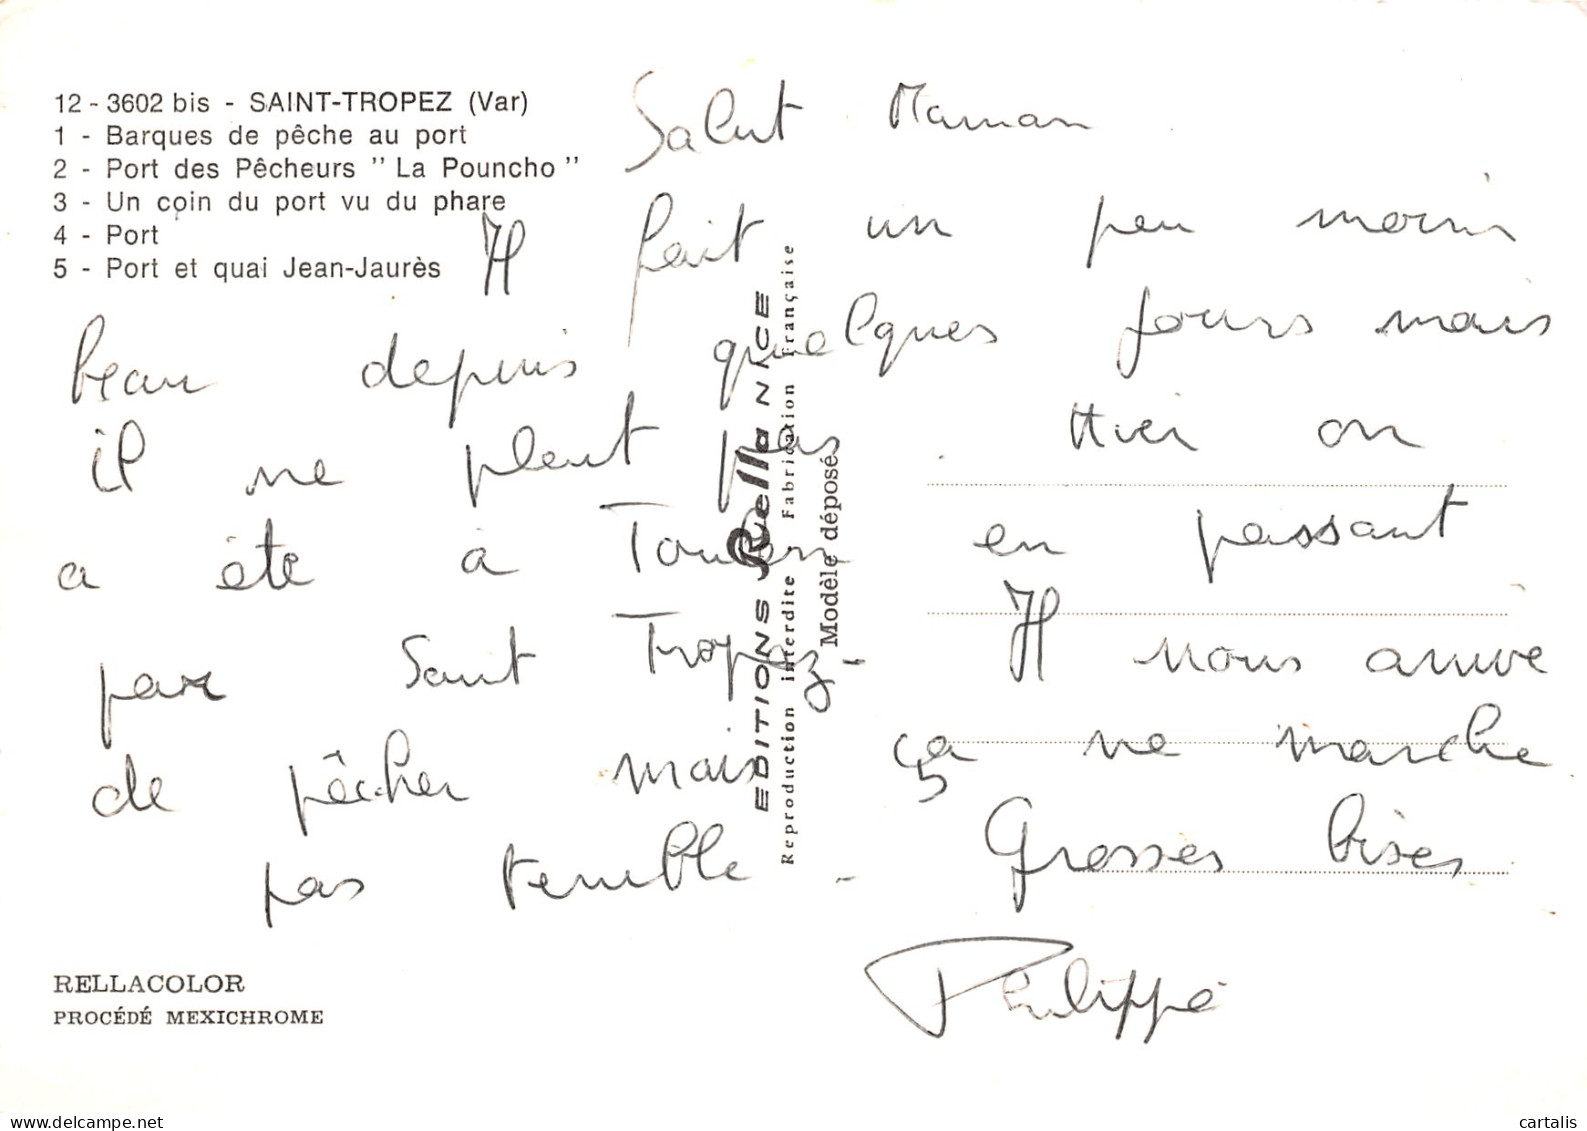 12 - 3602 bis - SAINT-TROPEZ (Var)
1 - Barques de pêche au port
2 - Port des Pêcheurs " La Pouncho "
3 - Un coin du port vu du phare
4 - Port
5 - Port et quai Jean-Jaurès
Salut Maman
Il fait un peu moins
beau depuis quelques jours mais
il ne pleut pas Hier on
a été à Toulon en passant
par Saint Tropez - Il nous arrive
de pêcher mais ça ne marche
pas terrible - Grosses bises
Philippe
EDITIONS Rella NICE
Reproduction interdite Fabrication Française
Modèle déposé
RELLACOLOR
PROCÉDÉ MEXICHROME
delcampe.net
cartalis